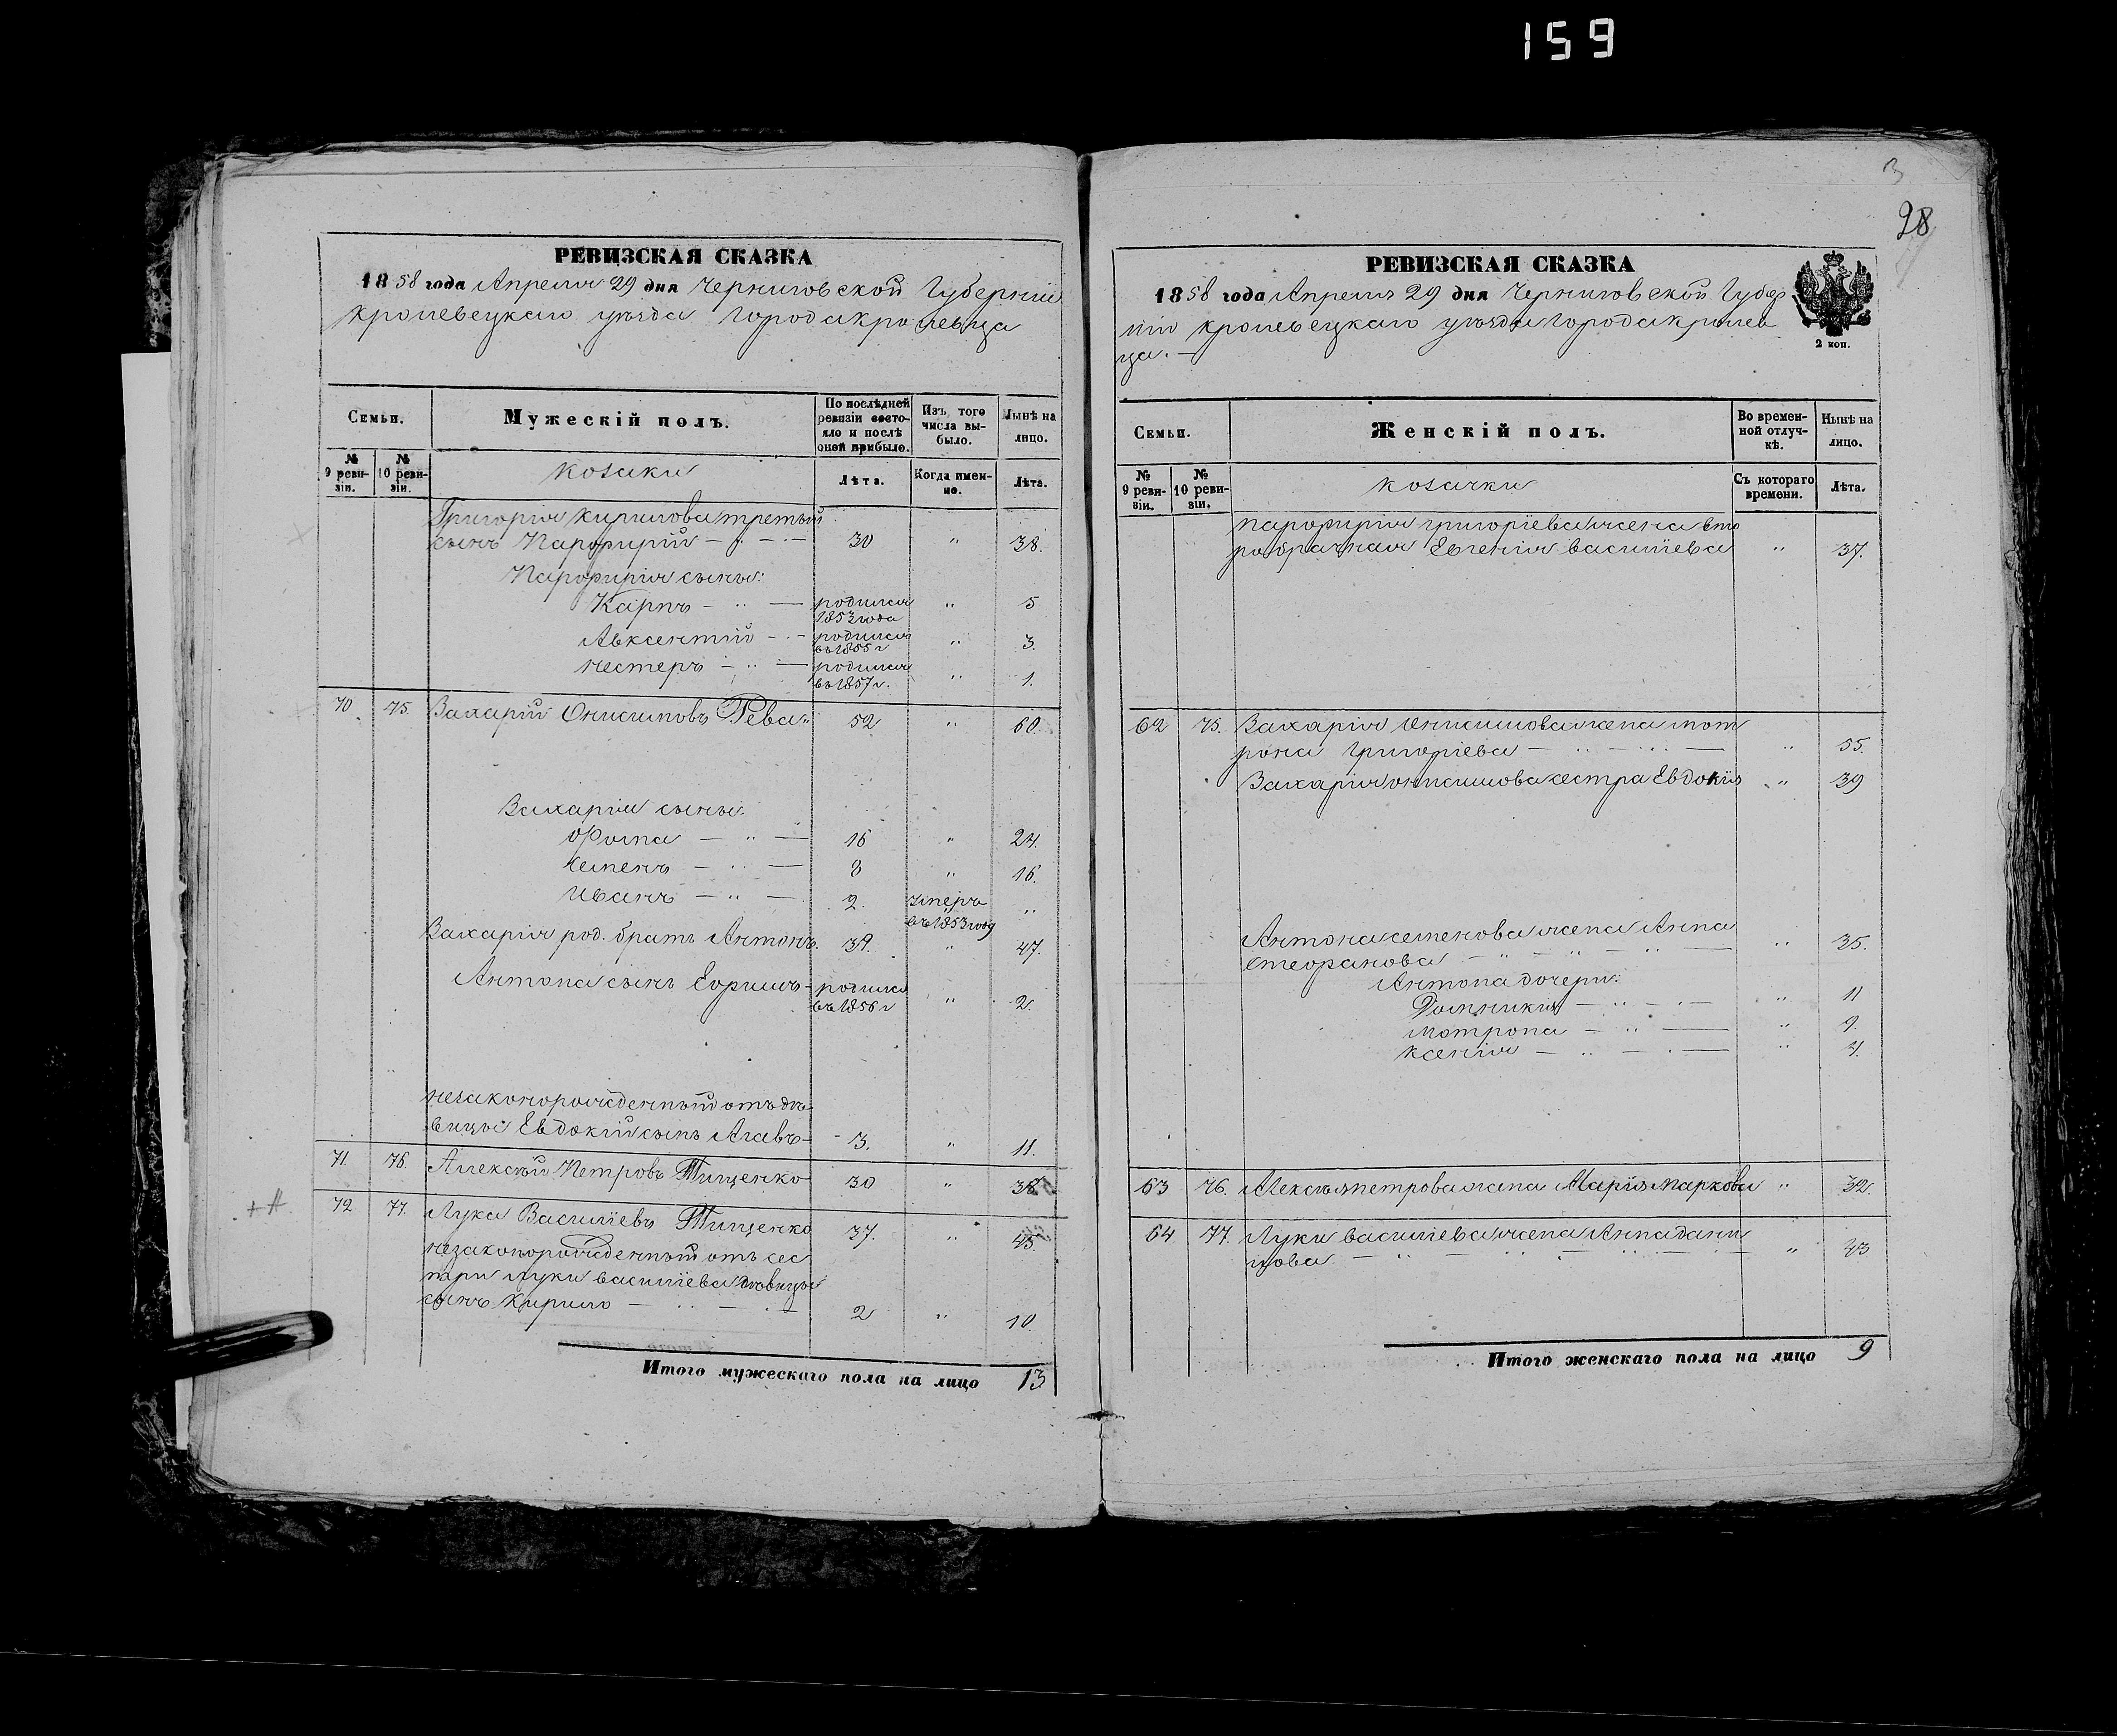 159
РЕВИЗСКАЯ СКАЗКА
1858 года Апреля 29 дня Черниговской Губерніи
Кролевецкаго уѣзда города Кролевца
Семьи.
Мужескій полъ.
По послѣдней ревизіи состояло и послѣ оной прибыло.
Изъ того числа выбыло.
Нынѣ на лицо.
№ 9 ревизіи.
№ 10 ревизіи.
козаки
Лѣта.
Когда именно.
Лѣта.
Григорія Кирилова третьий
сынъ Парфирий — „ — 30 „ 38.
Парфирія сыны:
Карпъ — „ — родился 1853 года „ 5
Авксентий — „ — родился въ 1855 г „ 3.
Нестеръ — „ — родился въ 1857 г. „ 1.
70 75. Захарий Онисимовъ Рева „ 52 „ 60.
Захарія сыны:
Фома — „ — 16 „ 24.
Семенъ — „ — 8 „ 16.
Иванъ — „ — 2. умеръ въ 1853 году „
Захарія род. братъ Антонъ. 39. „ 47.
Антона сынъ Ефимъ — родился въ 1856 г „ 2.
незаконорожденный отъ дѣ-
вицы Евдокии сынъ — 3. „ 11.
71. 76. Алексѣй Петровъ Тищенко 30 „ 38.
72 77. Лука Василіевъ Тищенко 37. „ 45.
незаконорожденный отъ сес
три Луки Василіева дѣвицы
сынъ Кирило — „ — 2 „ 10.
Итого мужескаго пола на лицо 13
3
98
РЕВИЗСКАЯ СКАЗКА
1858 года Апреля 29 дня Черниговской Губер
ніи Кролевецкаго уѣзда города Кролев
ца. —
2 коп.
Семьи.
Женскій полъ.
Во временной отлучкѣ.
Нынѣ на лицо.
№ 9 ревизіи.
№ 10 ревизіи.
козачки
Съ котораго времени.
Лѣта.
Парфирія Григоріева жена вто
робрачная Евгенія Василіева „ 37.
62 75. Захарія Онисимова жена Мот
рона Григоріева — „ — „ — „ 55.
Захарія Онисимова сестра Евдокія „ 39
Антона Семенова жена Анна
Стефанова — „ — „ — „ 35.
Антона дочери:
Домникия — „ — „ 11
Мотрона — „ — „ 9.
Ксенія — „ — „ 4.
63 76. Алексѣя Петрова жена Марія Маркова „ 32.
64 77. Луки Василіева жена Анна Дани
лова — „ — „ — „ 43
Итого женскаго пола на лицо 9